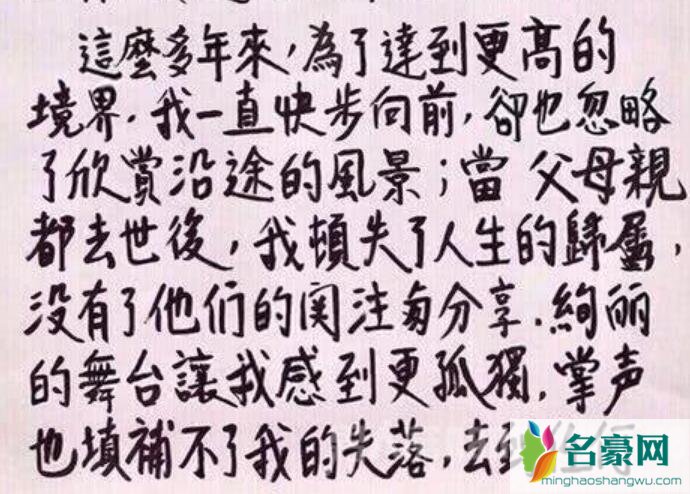 這麼多年來，為了達到更高的
境界，我一直快步向前，卻也忽略
了欣賞沿途的風景；當父母親
都去世後，我頓失了人生的歸屬，
没有了他们的関注與分享，絢丽
的舞台讓我感到更孤獨，掌声
也填補不了我的失落，去到
名豪网
minghaoshangwu.com